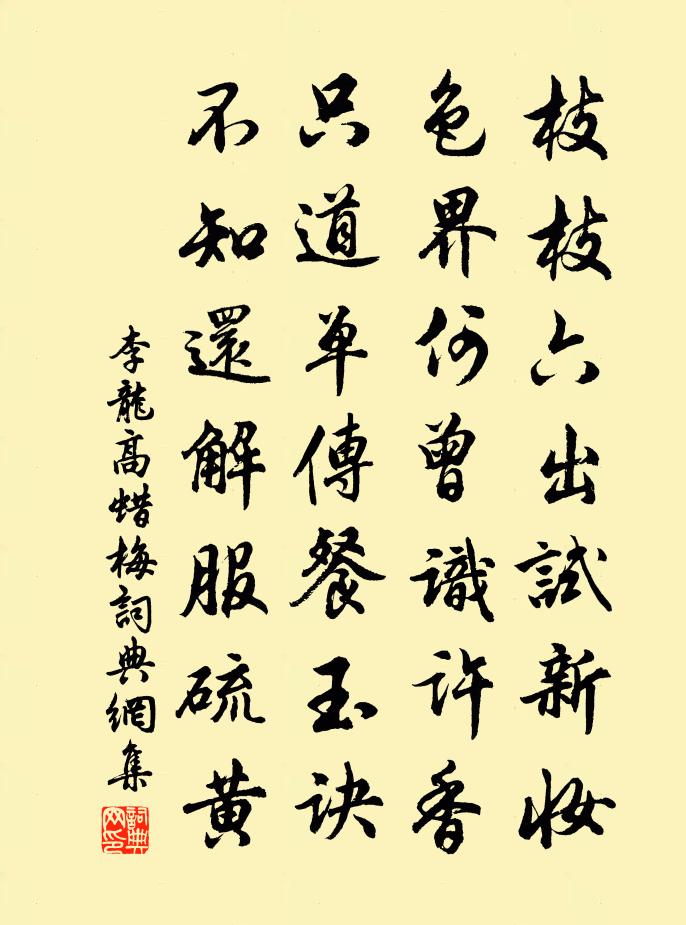 枝枝六出試新妝
色界何曾識許香
只道單傳餐玉訣
不知還解服硫黃
李龍高蜡梅詞典網集
詞典網印